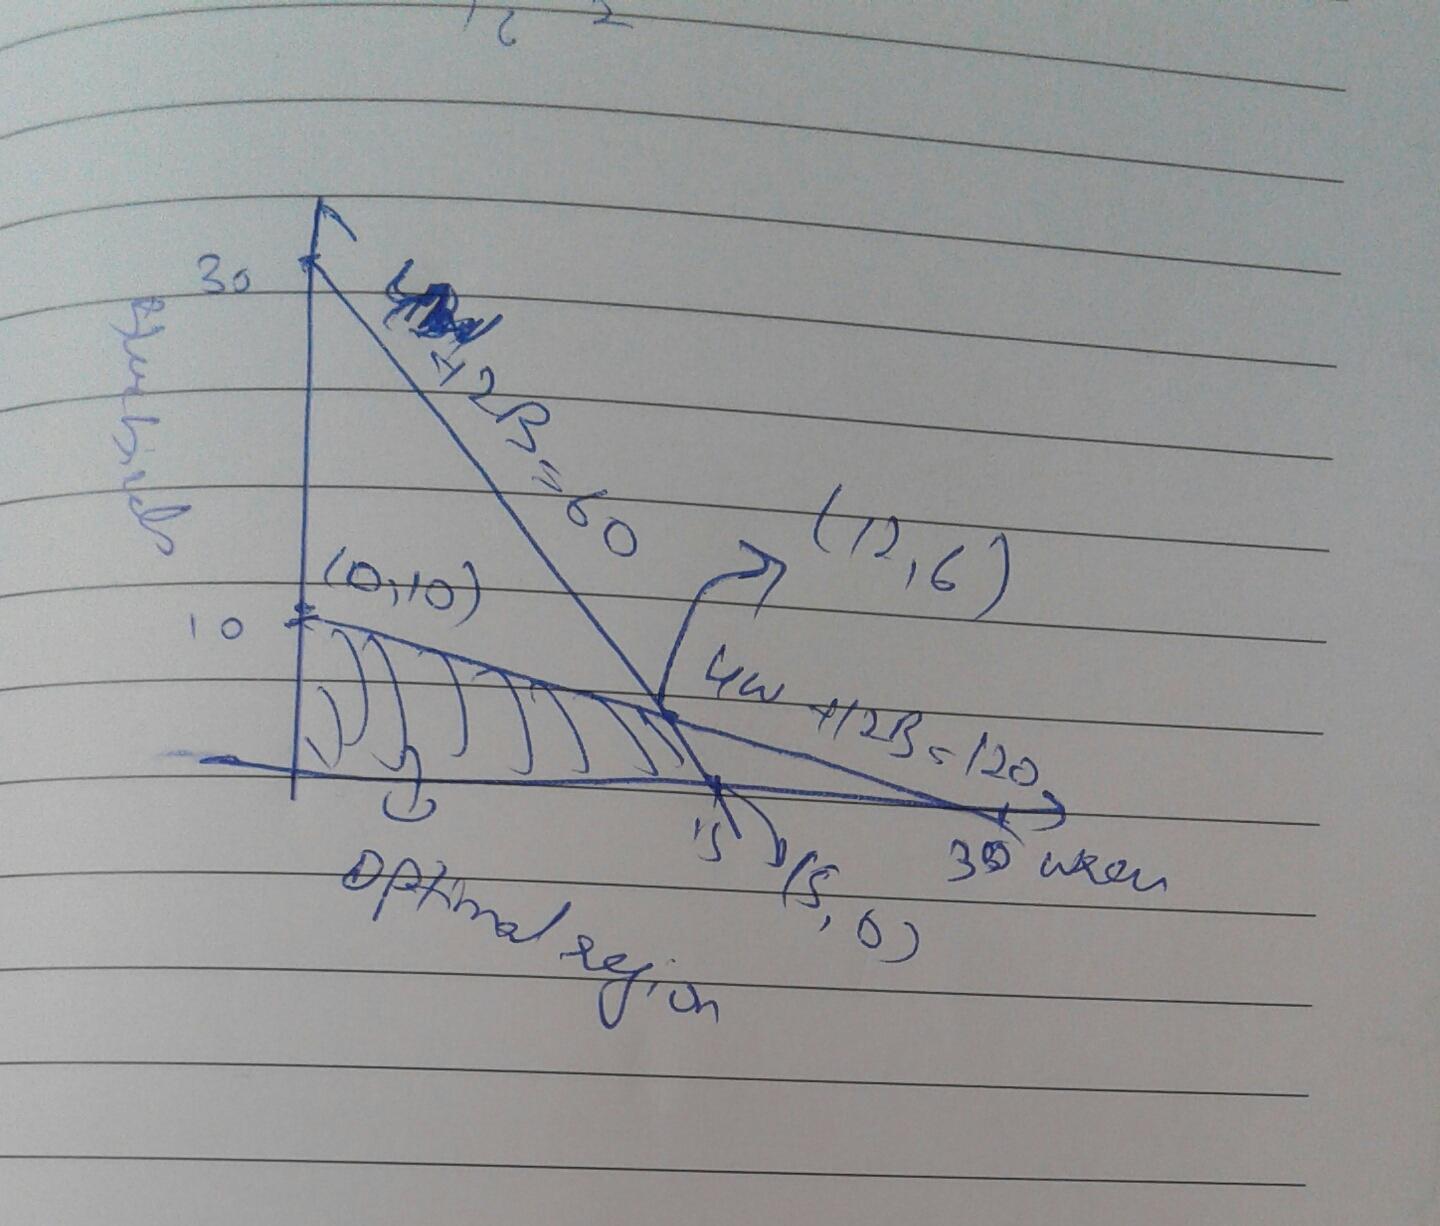 30
4W
+2B=60
Bluebirds
(12,6)
(0,10)
10
4W+12B=120
15
(15,0)
30 wren
Optimal region